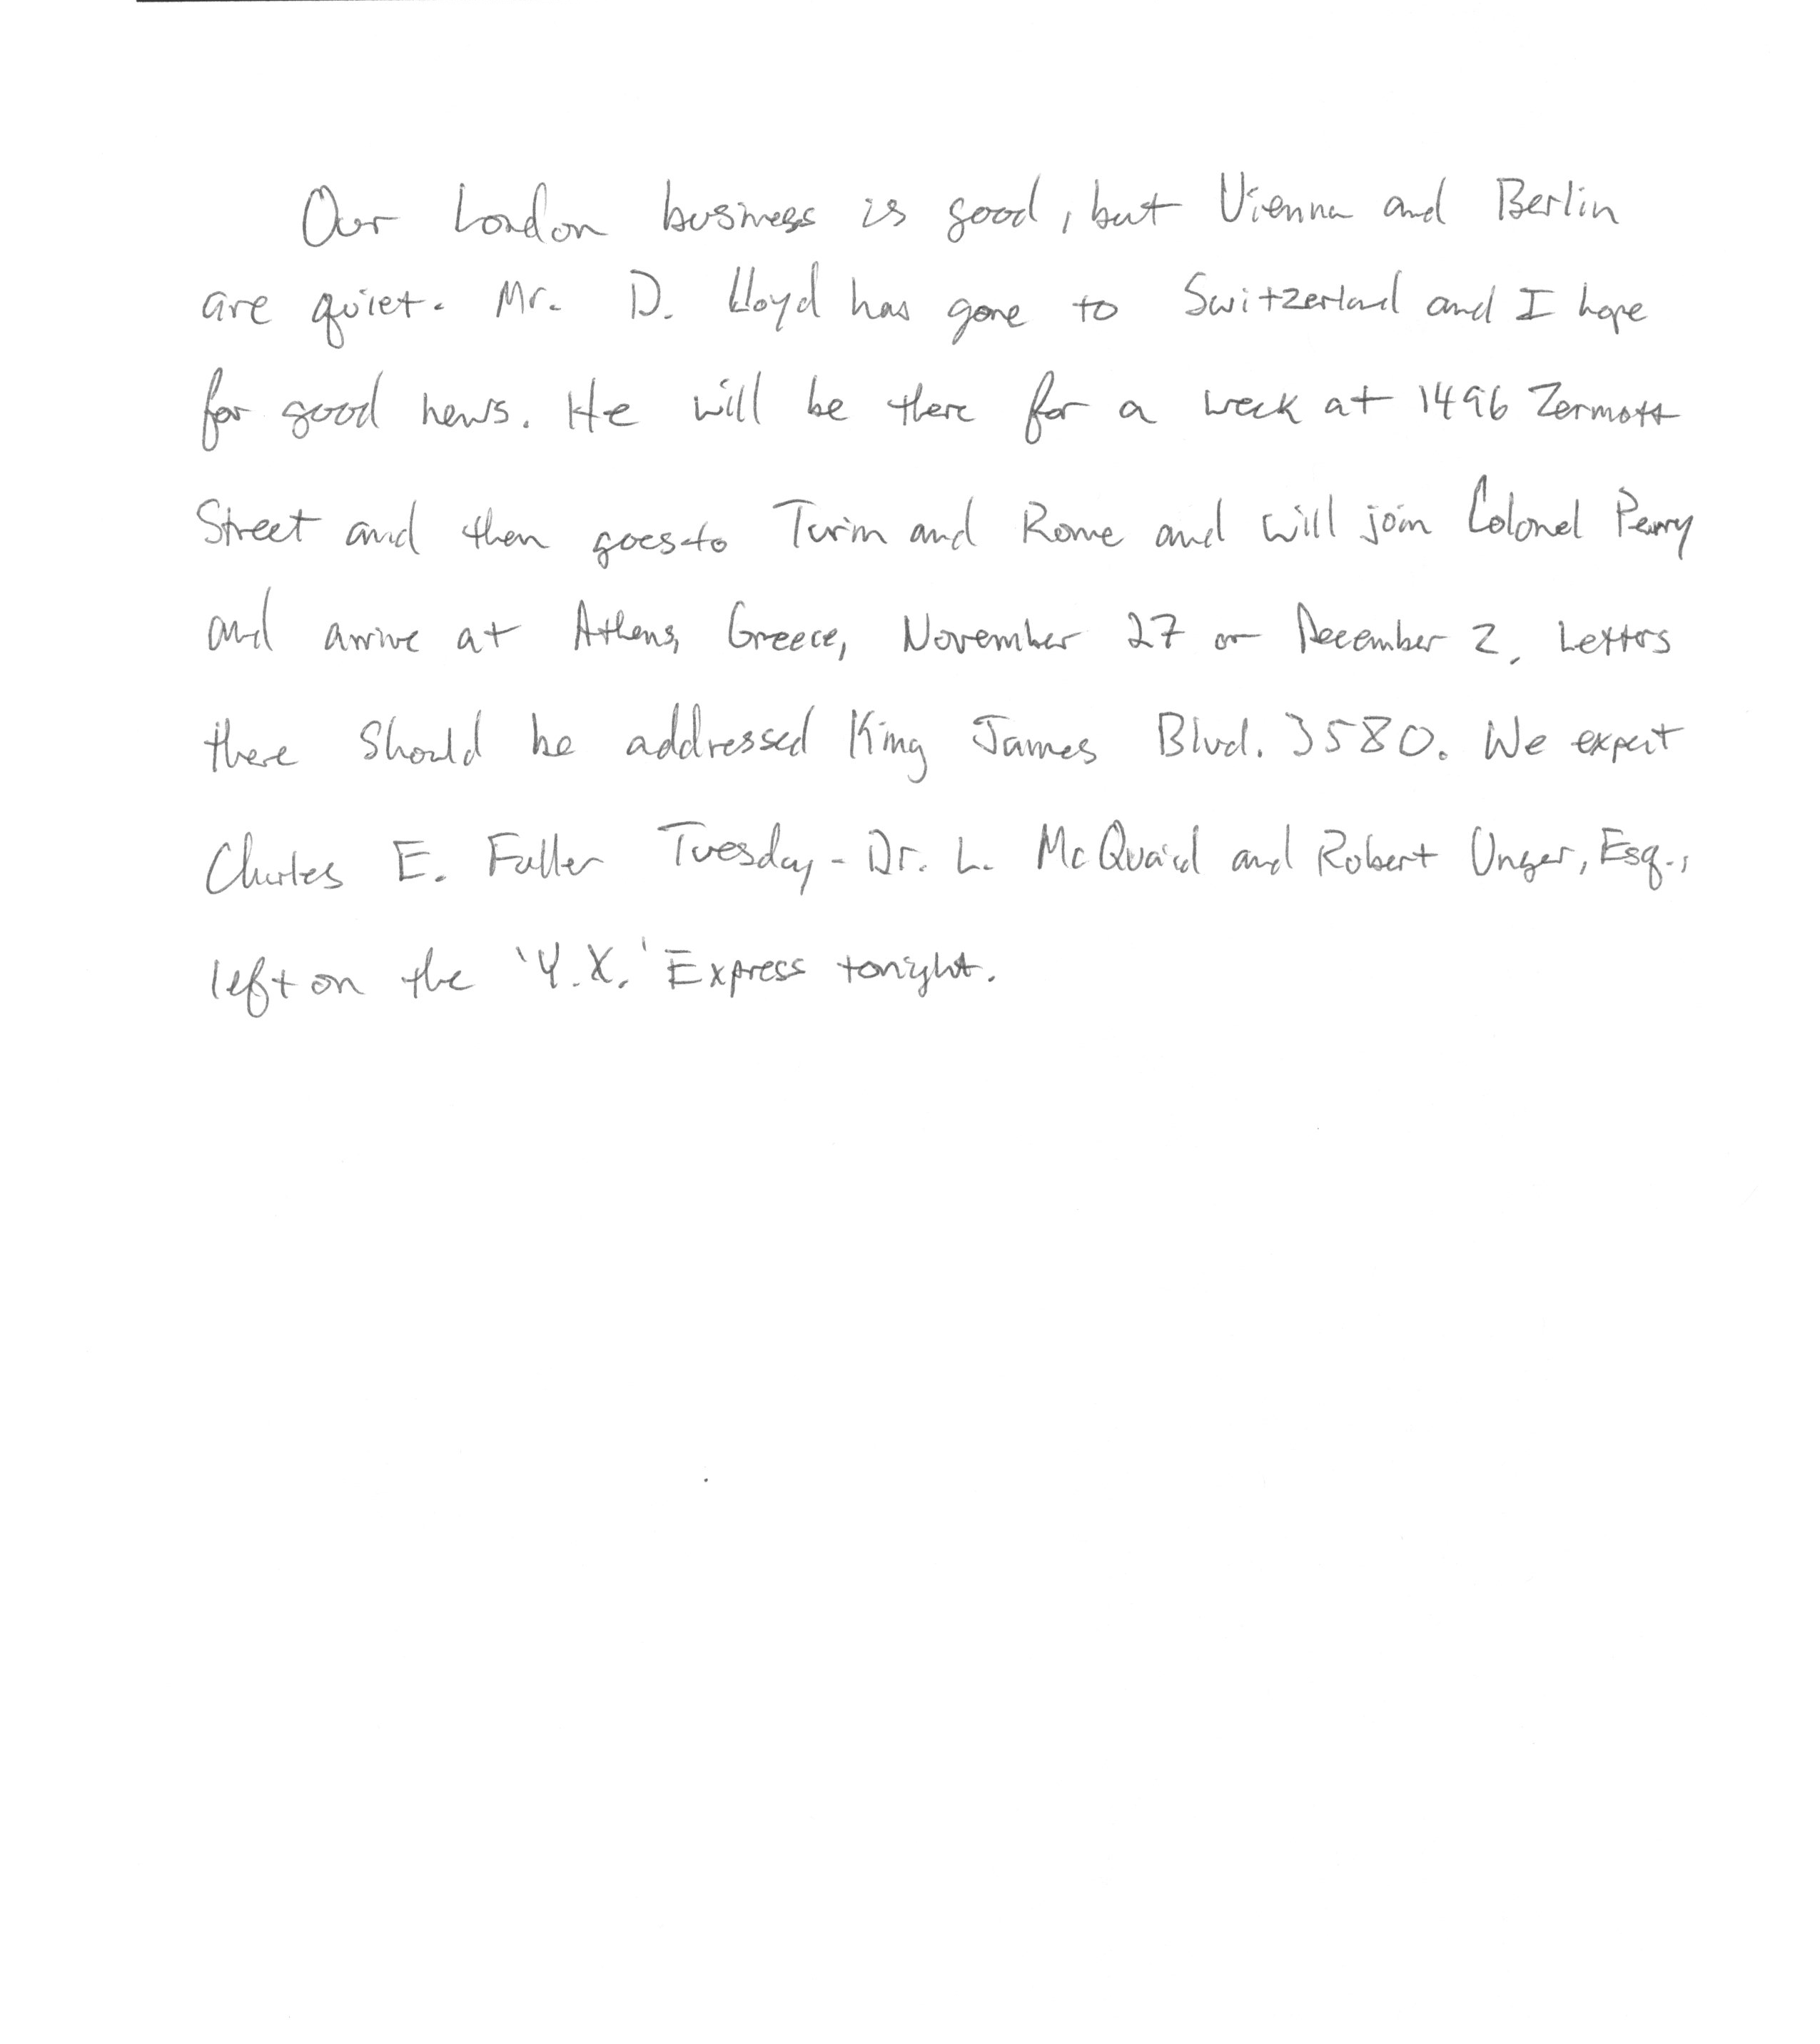 Our London business is good, but Vienna and Berlin
are quiet. Mr. D. Lloyd has gone to Switzerland and I hope
for good news. He will be there for a week at 1496 Zermott
Street and then goes to Turin and Rome and will join Colonel Perry
and arrive at Athens, Greece, November 27 or December 2. Letters
there should be addressed King James Blvd. 3580. We expect
Charles E. Fuller Tuesday - Dr. L. McQuaid and Robert Unger, Esq.,
left on the 'Y.X.' Express tonight.